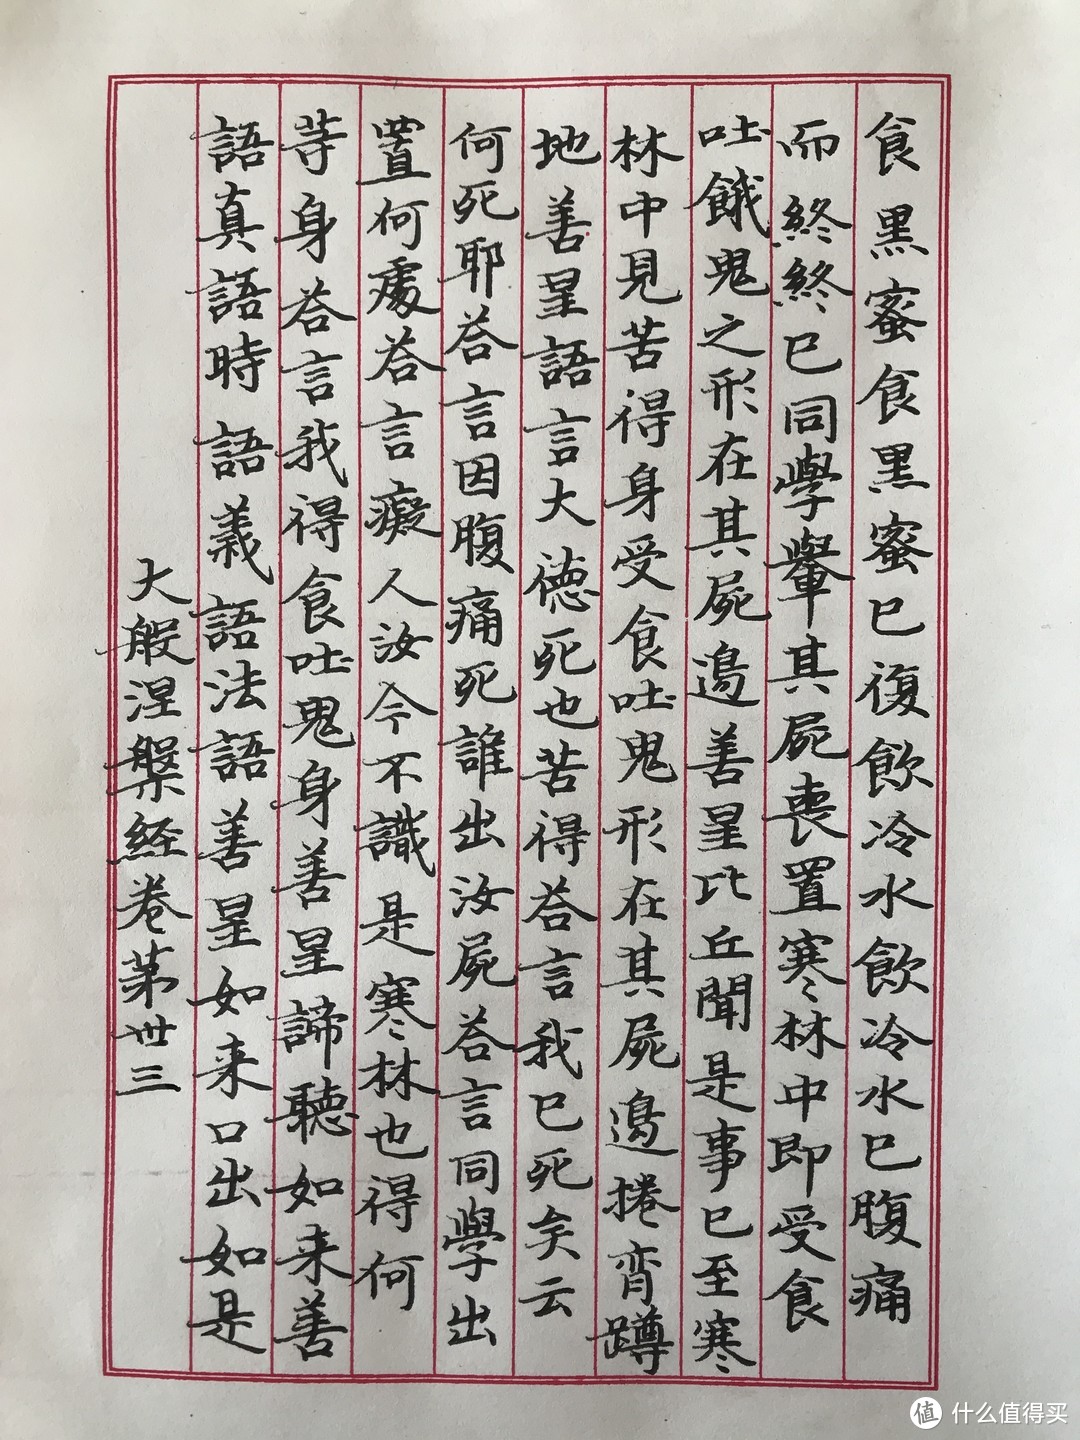 食黑蜜食黑蜜已復飲冷水飲冷水已腹痛
而終終已同學轝其屍喪置寒林中即受食
吐餓鬼之形在其屍邊善星比丘聞是事已至寒
林中見苦得身受食吐鬼形在其屍邊捲脊蹲
地善星語言大德死也苦得荅言我已死矣云
何死耶荅言因腹痛死誰出汝屍荅言同學出
置何處荅言癡人汝今不識是寒林也得何
等身荅言我得食吐鬼身善星諦聽如来善
語真語時語義語法語善星如来口出如是
大般涅槃経卷第卅三
值 什么值得买